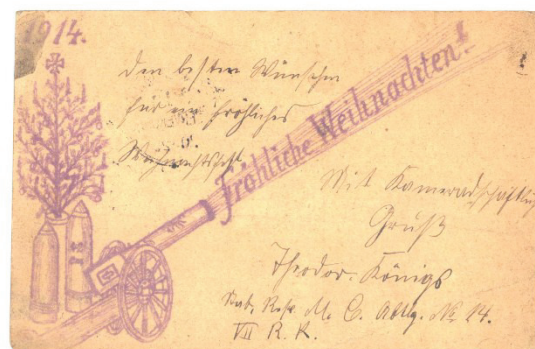 1914.
Den besten Wünschen
für ein fröhliches
Weihnachtsfest
Fröhliche Weihnachten!
Mit Kameradschaftlich
Gruß
Theodor Königs
M. C. Abtlg. No 14.
VII R. K.